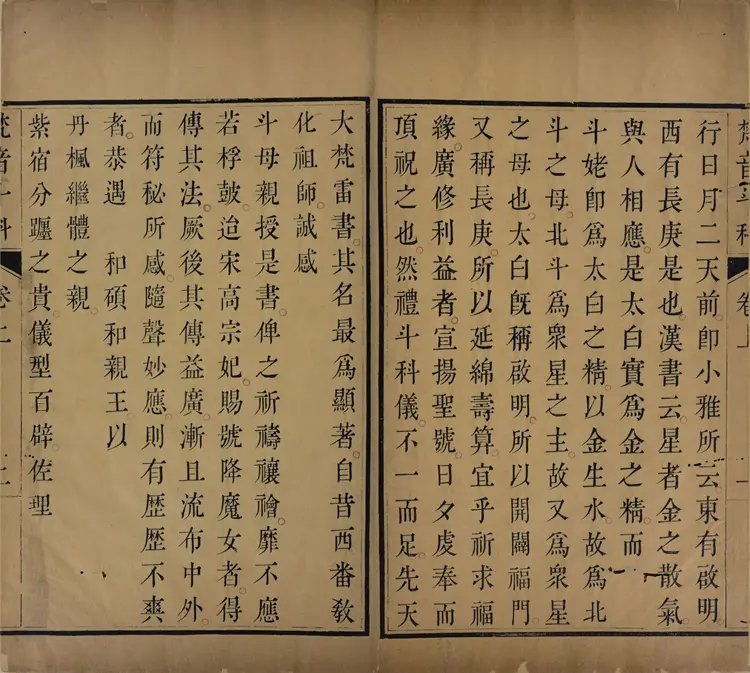 梵音斗科 卷上 一
行日月二天前卽小雅所云東有啟明
西有長庚是也漢書云星者金之散氣
與人相應是太白實爲金之精而
斗姥卽爲太白之精以金生水故爲北
斗之母北斗爲衆星之主故又爲衆星
之母也太白旣稱啟明所以開闢福門
又稱長庚所以延綿壽算宜乎祈求福
緣廣修利益者宣揚聖號日夕虔奉而
頂祝之也然禮斗科儀不一而足先天
大梵雷書其名最爲顯著自昔西番敎
化祖師誠感
斗母親授是書俾之祈禱禳禬靡不應
若桴鼓迨宋高宗妃賜號降魔女者得
傳其法厥後其傳益廣漸且流布中外
而符秘所感隨聲妙應則有歷歷不爽
者恭遇 和碩和親王以
丹楓繼體之親
紫宿分躔之貴儀型百辟佐理